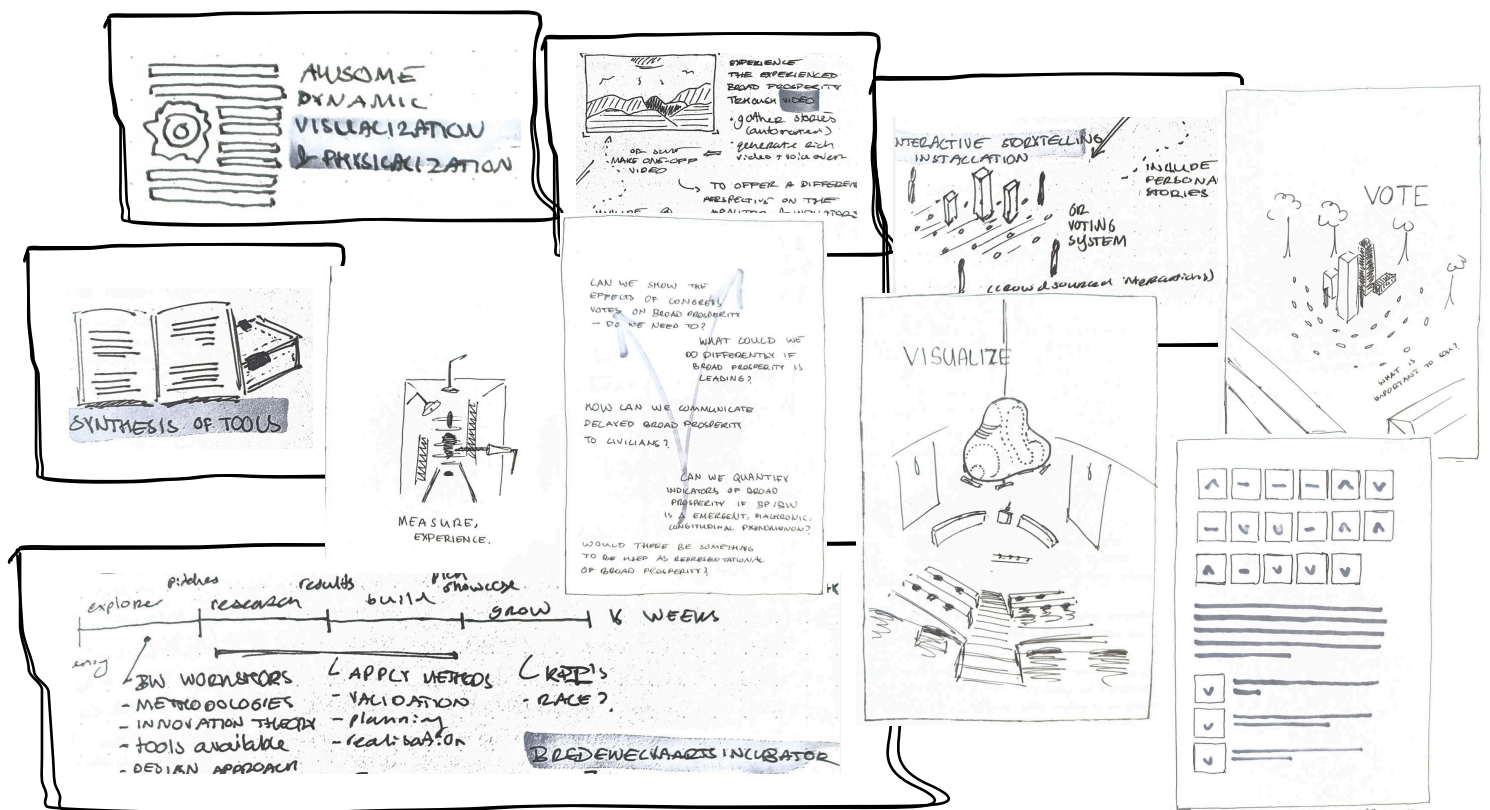 AWSOME
DYNAMIC
VISUALIZATION
& PHYSICALIZATION
EXPERIENCE
THE EXPERIENCED
BROAD PROSPERITY
THROUGH VIDEO
• gather stories
(automated)
• generate rich
video + voice over
OR JUST
MAKE ONE-OFF
VIDEO
TO OFFER A DIFFEREN
PERSPECTIVE ON THE
NTERACTIVE STORYTELLING
INSTALLATION
INCLUDE
PERSONA
STORIES
OR
VOTING
SYSTEM
(crowdsourced interactions)
VOTE
WHAT IS
IMPORTANT TO YOU?
SYNTHESIS OF TOOLS
MEASURE,
EXPERIENCE.
CAN WE SHOW THE
EFFECTS OF CONGRESS
VOTES ON BROAD PROSPERITY
– DO WE NEED TO?
WHAT COULD WE
DO DIFFERENTLY IF
BROAD PROSPERITY IS
LEADING?
HOW CAN WE COMMUNICATE
DELAYED BROAD PROSPERITY
TO CIVILIANS?
CAN WE QUANTIFY
INDICATORS OF BROAD
PROSPERITY IF BP/BW
IS A EMERGENT, DIACHRONIC,
LONGITUDINAL PHENOMENON?
WOULD THERE BE SOMETHING
TO BE USED AS REPRESENTATIONAL
OF BROAD PROSPERITY?
VISUALIZE
pitches
results
showcase
explore
research
build
grow
16 WEEKS
BW WORKSHOPS
- METHODOLOGIES
- INNOVATION THEORY
- tools available
- DESIGN APPROACH
APPLY METHODS
- VALIDATION
- planning
- realisation
- RACE?
BREDEWELVAARTSINCUBATOR